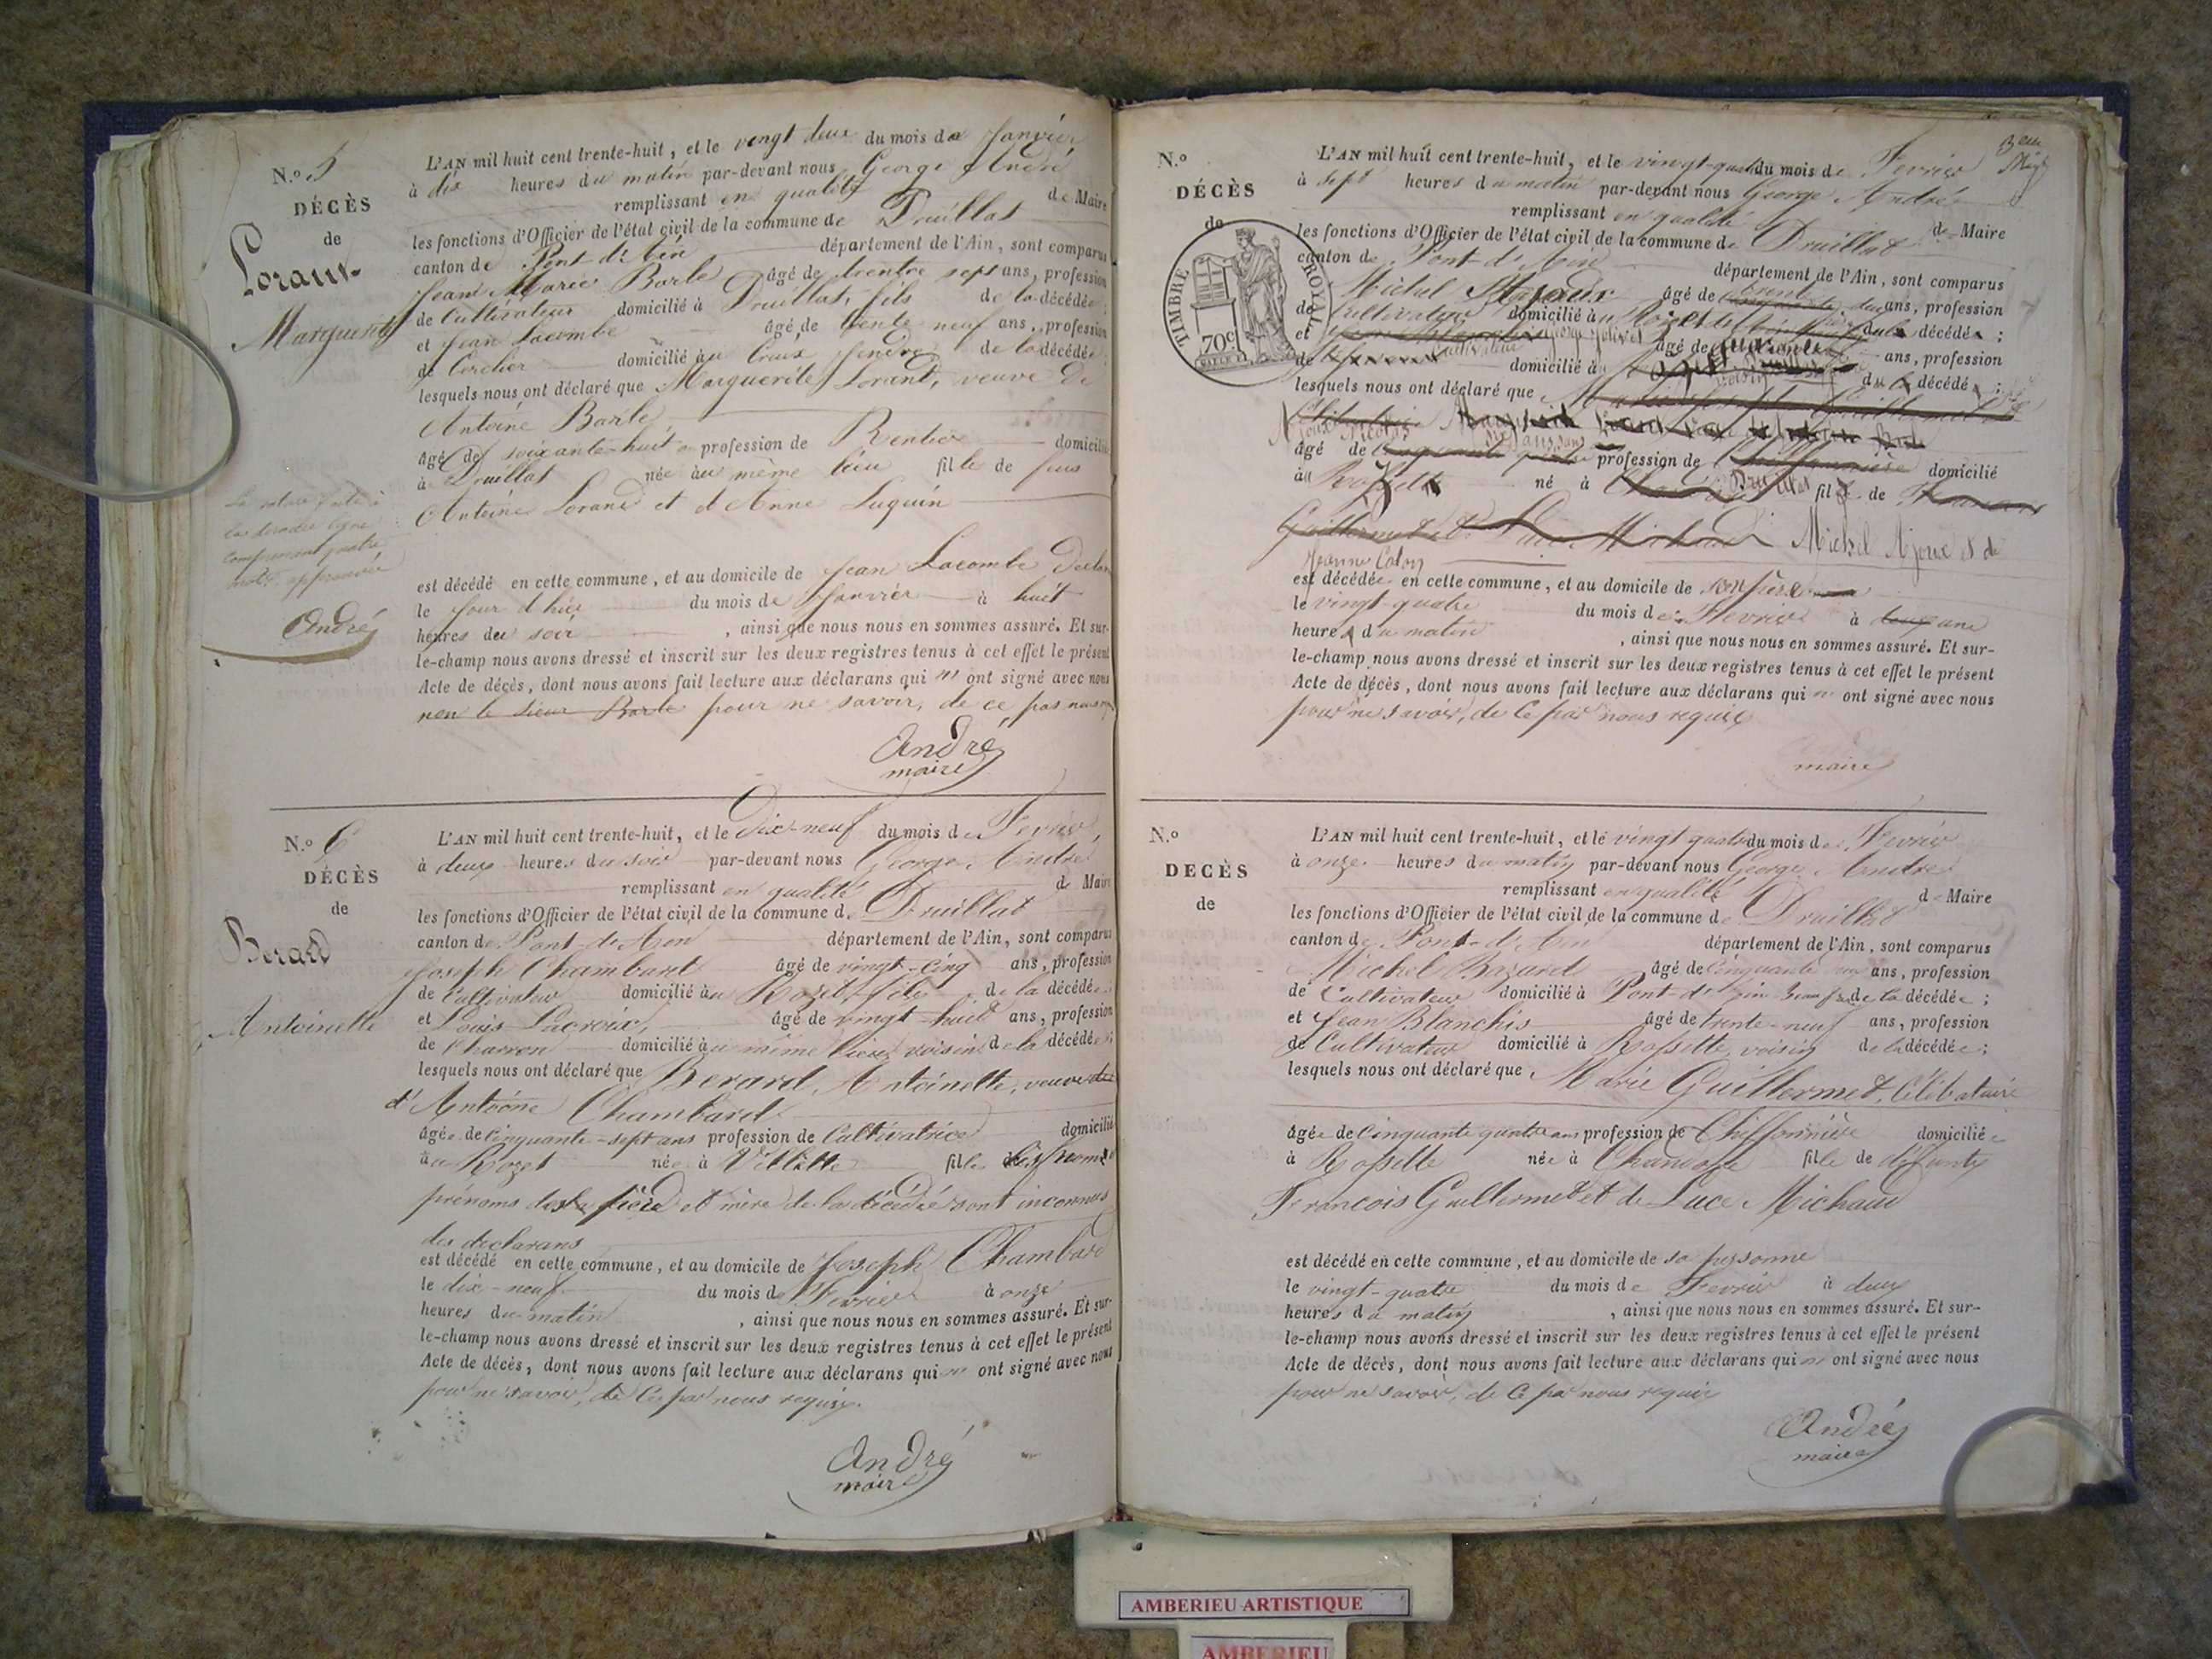 N.o 5
DÉCÈS
de
Loraut
Marguerite
L'AN mil huit cent trente-huit, et le vingt deux du mois de Janvier
à dix heures du matin par-devant nous George André
remplissant en qualité de Maire
les fonctions d'Officier de l'état civil de la commune de Druillat
canton de Pont d'Ain département de l'Ain, sont comparus
Jean Marie Barle âgé de trentre sept ans, profession
de Cultivateur domicilié à Druillat, fils de la décédée
et Jean Lacombe âgé de trente neuf ans, profession
de domicilié au de la décédée
lesquels nous ont déclaré que Marguerite Lorand, veuve de
Antoine Barle
âgé de soixante-huit profession de Rentier domicilié
à Druillat née au même lieu fille de feus
Antoine Lorand et d'Anne Luquin
est décédé en cette commune, et au domicile de Jean Lacombe
le jour d'hier du mois de Janvier à huit
heures du soir, ainsi que nous nous en sommes assuré. Et sur-
le-champ nous avons dressé et inscrit sur les deux registres tenus à cet effet le présent
Acte de décès, dont nous avons fait lecture aux déclarans qui n' ont signé avec nous
non le sieur Barle pour ne savoir, de ce par nous
La rature faite à
la dernière ligne
comprenant quatre
mots approuvée
André
André
maire
N.o 6
DÉCÈS
de
Berard
Antoinette
L'AN mil huit cent trente-huit, et le Dix-neuf du mois de Fevrier,
à deux heures du soir par-devant nous George André
remplissant en qualité de Maire
les fonctions d'Officier de l'état civil de la commune de Druillat
canton de Pont-d'Ain département de l'Ain, sont comparus
Joseph Chambard âgé de vingt-cinq ans, profession
de Cultivateur domicilié au Rozet, fils de la décédée
et Louis Lacroix, âgé de vingt-huit ans, profession
de Charron domicilié au même lieu, voisin de la décédée
lesquels nous ont déclaré que Berard, Antoinette, veuve
d'Antoine Chambard
âgée de cinquante-sept ans profession de Cultivatrice domicilié
au Rozet née à Villette fille les noms
prénoms des père et mère de la décédée sont inconnus
des declarans
est décédé en cette commune, et au domicile de Joseph Chambard
le dix-neuf du mois de Fevrier à onze
heures du matin, ainsi que nous nous en sommes assuré. Et sur-
le-champ nous avons dressé et inscrit sur les deux registres tenus à cet effet le présent
Acte de décès, dont nous avons fait lecture aux déclarans qui n' ont signé avec nous
pour ne savoir, de ce par nous requis.
André
maire
N.o
DÉCÈS
de
TIMBRE ROYAL
70c
L'AN mil huit cent trente-huit, et le vingt-quatre du mois de Fevrier
à sept heures du matin par-devant nous George André
remplissant en qualité de Maire
les fonctions d'Officier de l'état civil de la commune de Druillat
canton de Pont-d'Ain département de l'Ain, sont comparus
Michel Ajoux âgé de trente ans, profession
de Cultivateur domicilié au décédé ;
et âgé de ans, profession
de domicilié à du décédé ;
lesquels nous ont déclaré que
âgé de profession de domicilié
au Rossette né à Druillat fils de
Michel Ajoux et de
Jeanne
est décédé en cette commune, et au domicile de son père
le vingt-quatre du mois de Fevrier à une
heure du matin, ainsi que nous nous en sommes assuré. Et sur-
le-champ nous avons dressé et inscrit sur les deux registres tenus à cet effet le présent
Acte de décès, dont nous avons fait lecture aux déclarans qui n' ont signé avec nous
pour ne savoir, de ce par nous requis
maire
N.o
DECÈS
de
L'AN mil huit cent trente-huit, et le vingt quatre du mois de Fevrier
à onze heures du matin par-devant nous George André
remplissant en qualité de Maire
les fonctions d'Officier de l'état civil de la commune de Druillat
canton de Pont-d'Ain département de l'Ain, sont comparus
Michel âgé de Cinquante un ans, profession
de Cultivateur domicilié à Pont-d'ain de la décédée ;
et Jean Blanchis âgé de trente-neuf ans, profession
de Cultivateur domicilié à Rossette, voisin de la décédée ;
lesquels nous ont déclaré que Marie Guillermet, Célibataire
âgée de Cinquante quatre ans profession de Chiffonnière domiciliée
à Rossette née à fille de défunts
Francois Guillermet et de Luce Michaud
est décédé en cette commune, et au domicile de sa personne
le vingt-quatre du mois de Fevrier à deux
heures du matin, ainsi que nous nous en sommes assuré. Et sur-
le-champ nous avons dressé et inscrit sur les deux registres tenus à cet effet le présent
Acte de décès, dont nous avons fait lecture aux déclarans qui n' ont signé avec nous
pour ne savoir, de ce par nous requis
André
maire
AMBERIEU ARTISTIQUE
AMBERIEU